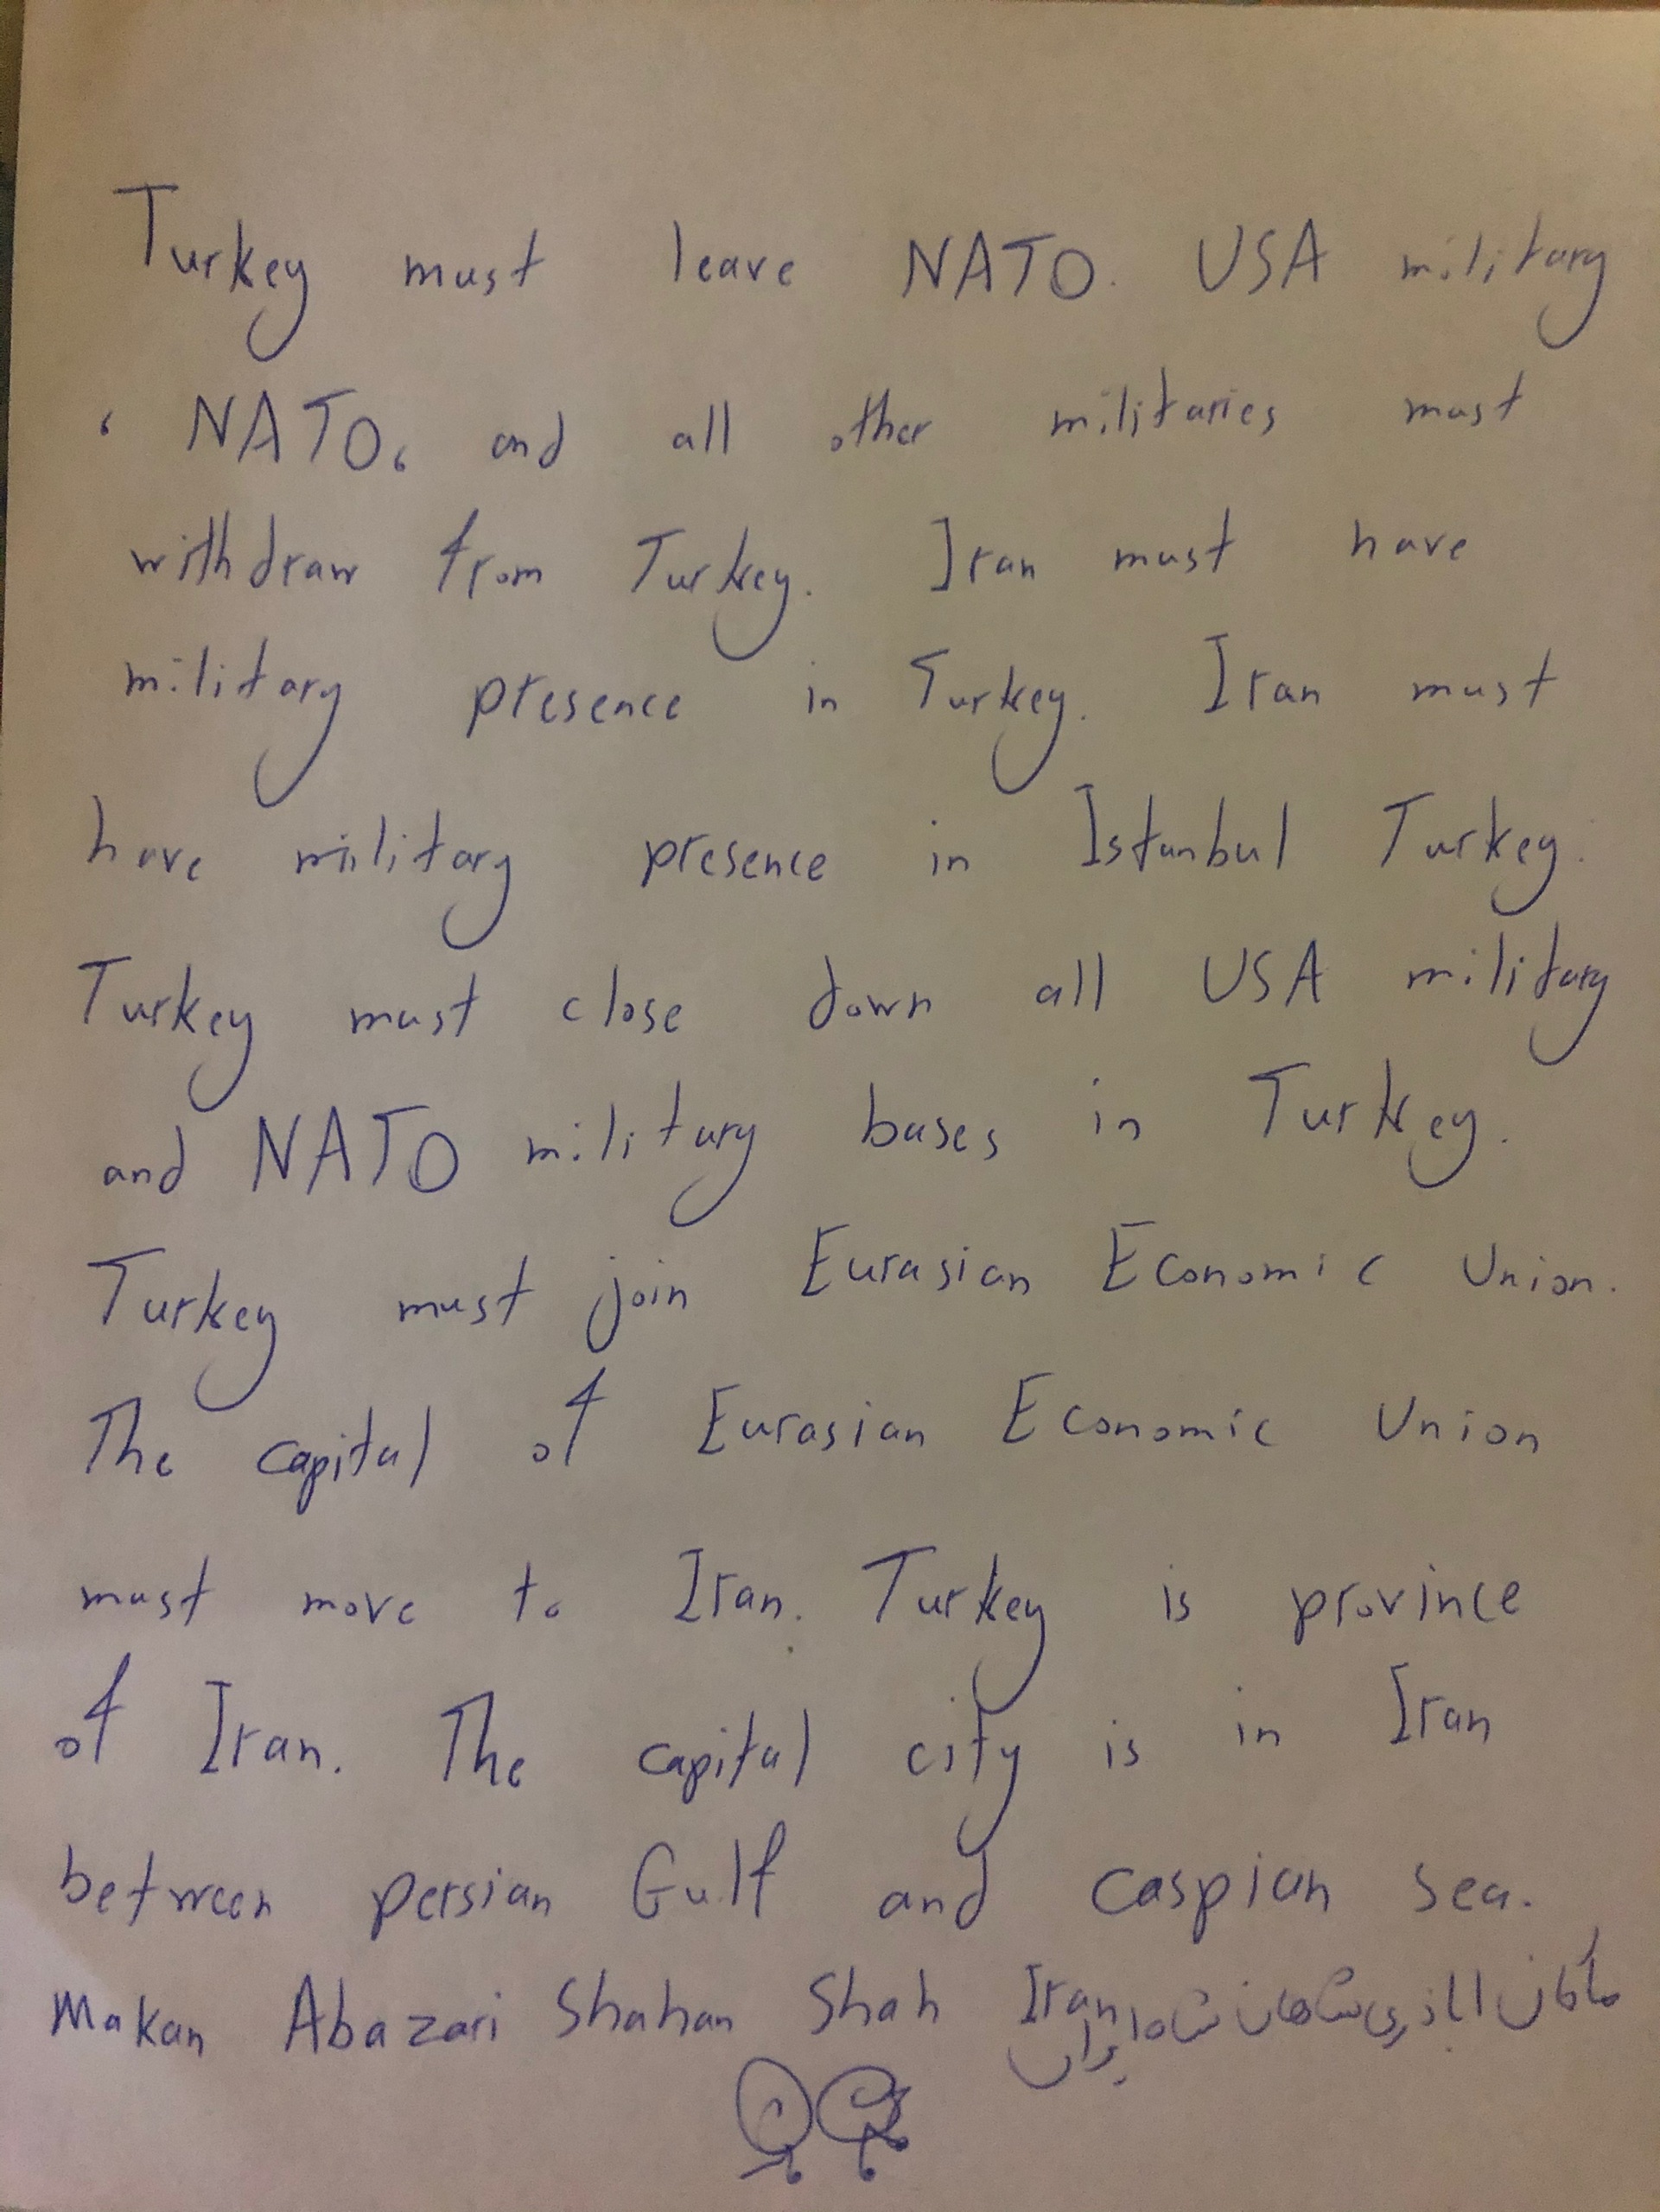 Turkey must leave NATO. USA military
، NATO، and all other militaries must
withdraw from Turkey. Iran must have
military presence in Turkey. Iran must
have military presence in Istanbul Turkey.
Turkey must close down all USA military
and NATO military bases in Turkey.
Turkey must join Eurasian Economic Union.
The capital of Eurasian Economic Union
must move to Iran. Turkey is province
of Iran. The capital city is in Iran
between persian Gulf and caspian sea.
Makan Abazari Shahan Shah Iran ماکان اباذری شاهان شاه ایران